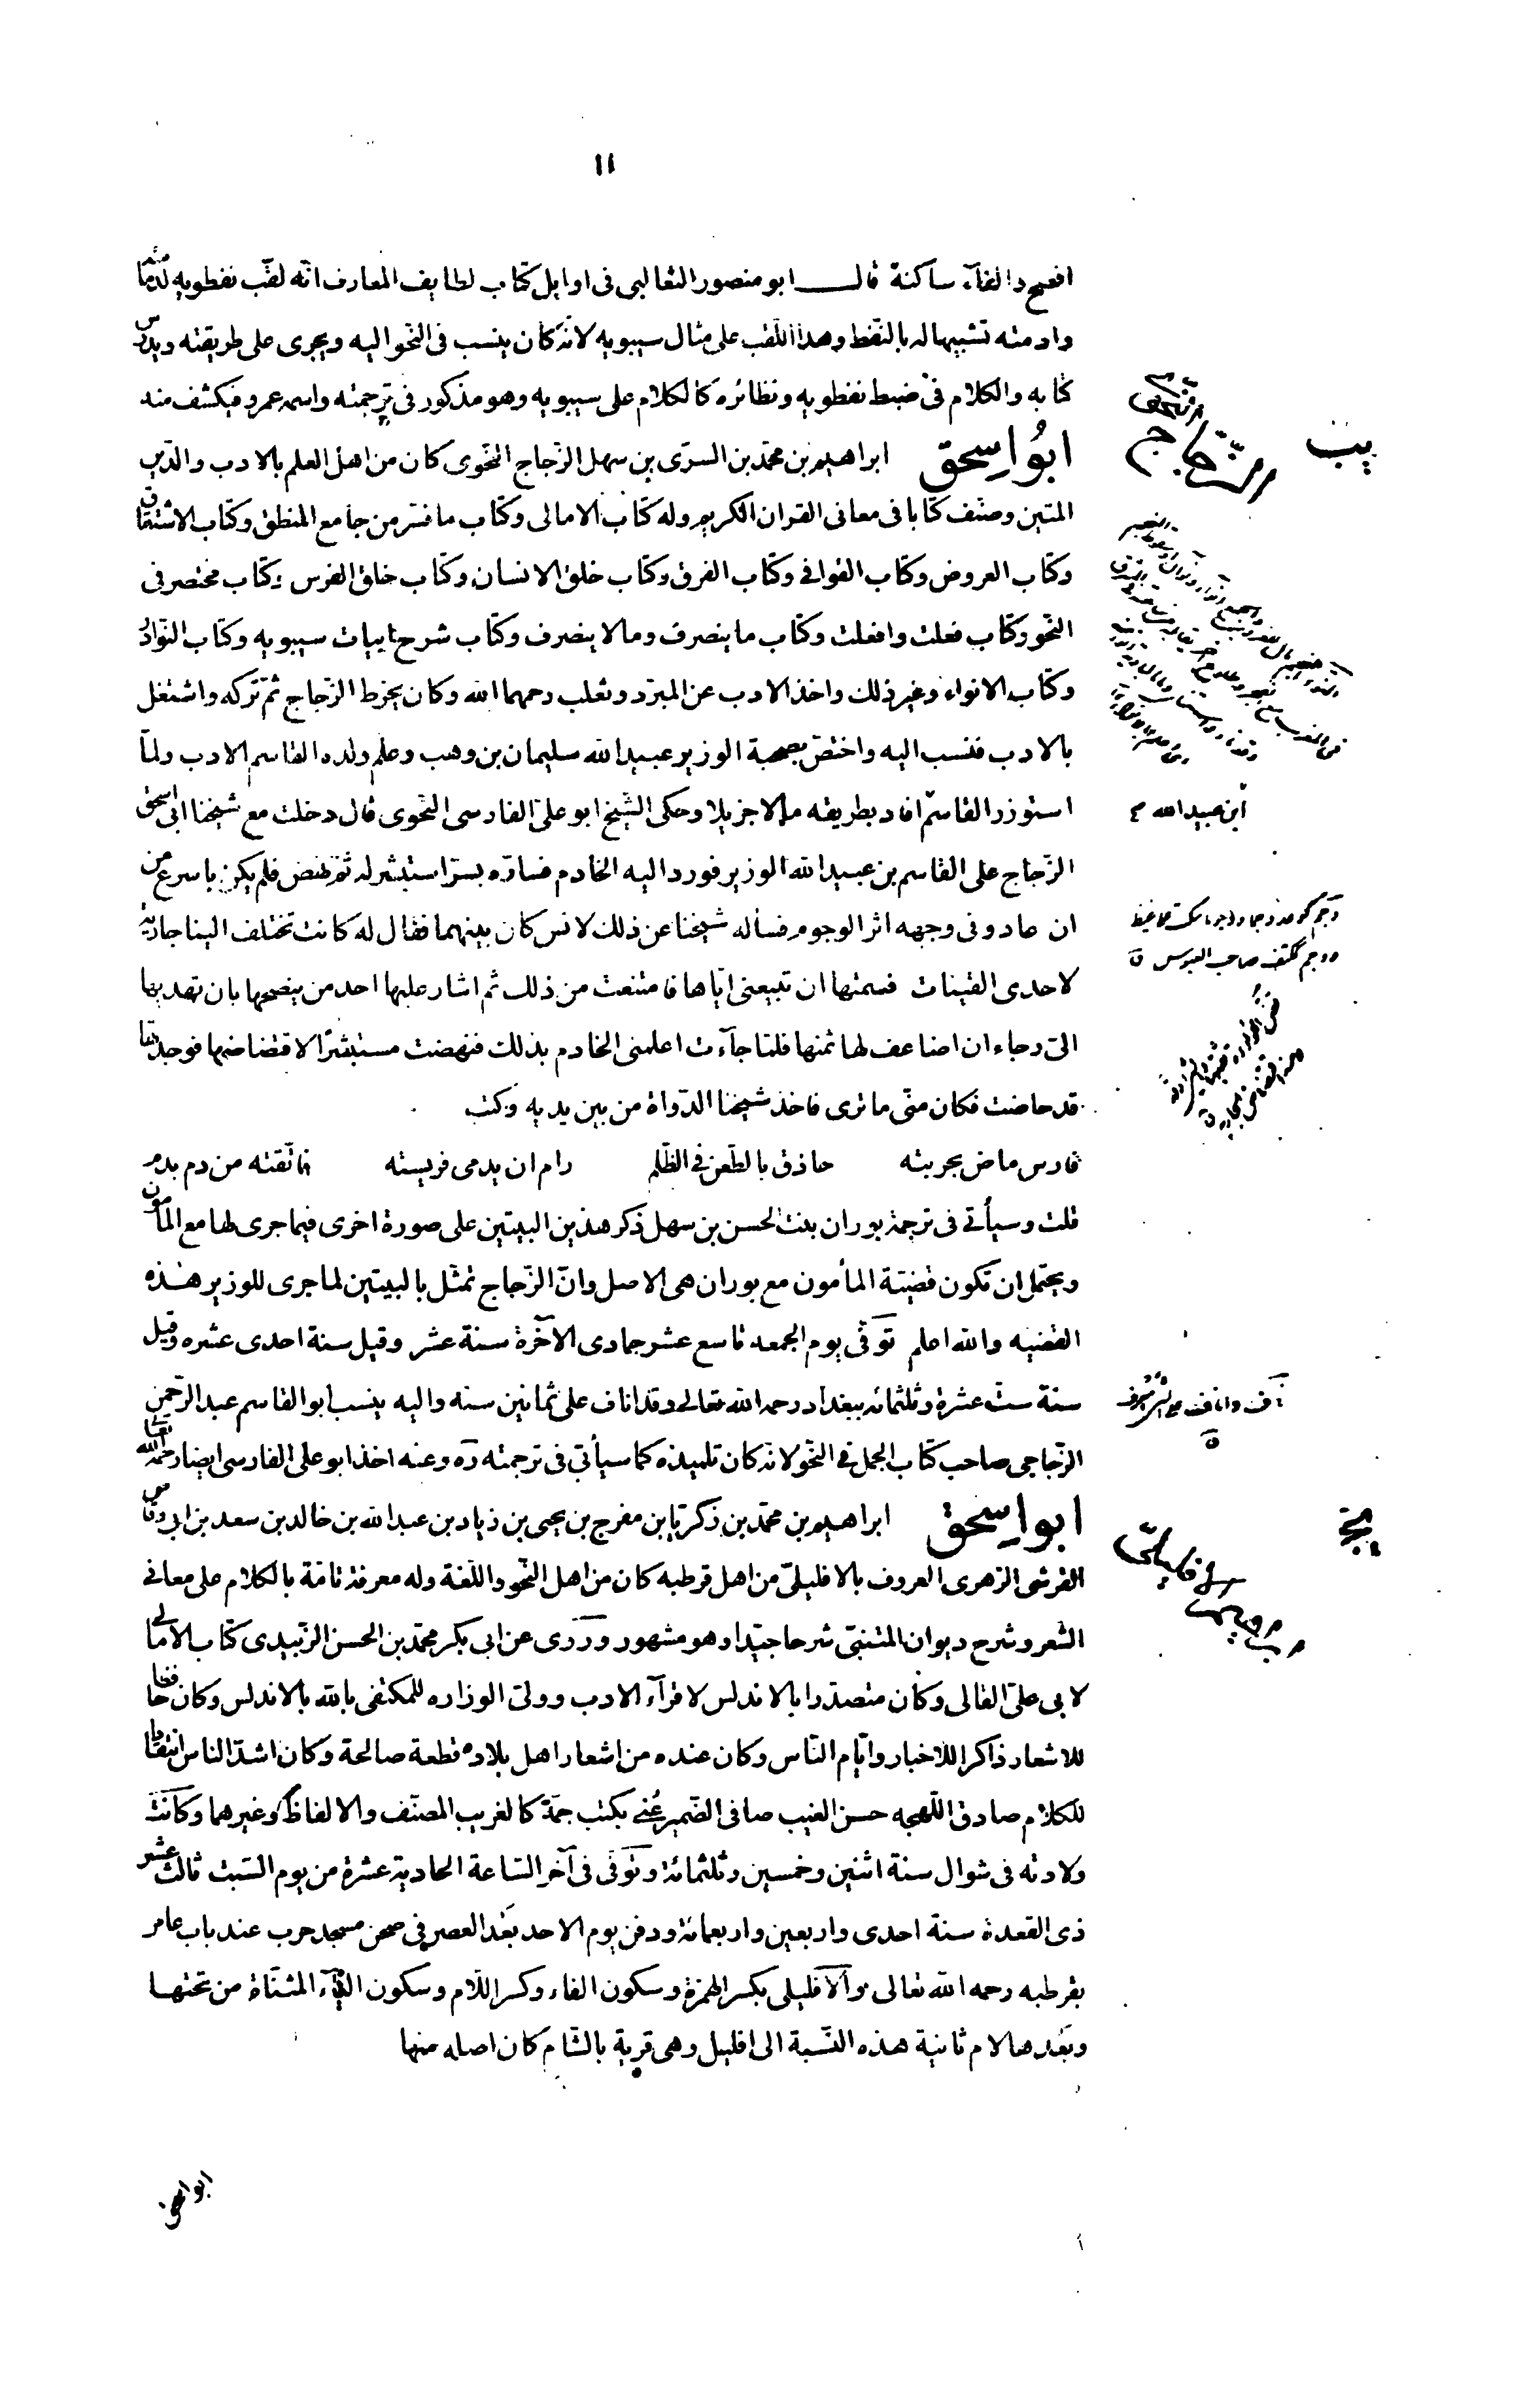 ١١
افصح والفآء ساكنة قال ابو منصور الثعالبى فى اوايل كتاب لطايف المعارف انّه لقّب نفطويه لدمامته
وادمته تشبيها له بالنّفط وهذا اللّقب على مثال سيبويه لانّه كان ينسب فى النّحو اليه ويجرى على طريقته ويدرس
كتابه والكلام فى ضبط نفطويه ونظائره كالكلام على سيبويه وهو مذكور فى ترجمته واسمه عمرو فيكشف منه
يب
الزّجّاج
ابُو اسحق ابراهيم بن محمّد بن السرّى بن سهل الزّجاج النّحوى كان من اهل العلم بالادب والدّين
المتين وصنّف كتابا فى معانى القران الكريم وله كتاب الامالى وكتاب ما فسّر من جامع المنطق وكتاب الاشتقاق
وكتاب العروض وكتاب القوافى وكتاب الفرق وكتاب خلق الانسان وكتاب خلق الفرس وكتاب مختصر فى
النّحو وكتاب فعلت وافعلت وكتاب ما ينصرف وما لا ينصرف وكتاب شرح ابيات سيبويه وكتاب النّوادر
وكتاب الانواء وغير ذلك واخذ الادب عن المبرّد وثعلب رحمهما الله وكان يخرط الزّجاج ثمّ تركه واشتغل
بالادب فنسب اليه واختصّ بصحبة الوزير عبيد الله سليمان بن وهب وعلّم ولده القاسم الادب ولمّا
استوزر القاسم افاد بطريقه مالا جزيلا وحكى الشّيخ ابو علىّ الفارسى النّحوى قال دخلت مع شيخنا ابى اسحق
ابن عبيد الله
الزّجاج على القاسم بن عبيد الله الوزير فورد اليه الخادم فسارّه بسرّ استبشر له ثم نهض فلم يكن باسرع من
ان عاد وفى وجهه اثر الوجوم فسأله شيخنا عن ذلك لانس كان بينهما فقال له كانت تختلف الينا جارية
لاحدى القينات فسمتها ان تبيعنى ايّاها فامتنعت من ذلك ثم اشار عليها احد من ينصحها بان تهديها
الىّ رجاء ان اضاعف لها ثمنها فلمّا جآءت اعلمنى الخادم بذلك فنهضت مستبشرًا لاقتضاضها فوجدتها
قد حاضت فكان منّى ما ترى فاخذ شيخنا الدّواة من بين يديه وكتب
فارس ماض بحربته حاذق بالطّعن فى الظّلم رام ان يدمى فريسته فاتّقته من دم بدم
قلت وسيأتى فى ترجمة بوران بنت الحسن بن سهل ذكر هذين البيتين على صورة اخرى فيما جرى لها مع المأمون
ويحتمل ان تكون قضيّة المأمون مع بوران هى الاصل وانّ الزّجاج تمثّل بالبيتين لما جرى للوزير هذه
القضيه والله اعلم توفّى يوم الجمعه تاسع عشر جمادى الآخرة سنة عشر وقيل سنة احدى عشره وقيل
سنة ستّ عشرة وثلثمائه ببغداد رحمه الله تعالى وقد اناف على ثمانين سنه واليه ينسب ابو القاسم عبد الرّحمن
الزّجاجى صاحب كتاب الجمل فى النّحو لانه كان تلميذه كما سيأتى فى ترجمته ره وعنه اخذ ابو على الفارسى ايضا رحمه الله تعالى
يج
ابو اسحق ابراهيم بن محمّد بن زكريّا بن مفرج بن يحيى بن زياد بن عبد الله بن خالد بن سعد بن ابى وقاص
القرشى الزهرى المعروف بالافليلىّ من اهل قرطبه كان من اهل النّحو واللّغة وله معرفة تامّة بالكلام على معانى
الشعر وشرح ديوان المتنبّى شرحا جيّدا وهو مشهور وروى عن ابى بكر محمّد بن الحسن الزّبيدى كتاب الامالى
لابى علىّ القالى وكان متصدّرا بالاندلس لاقرآء الادب وولى الوزاره للمكتفى بالله بالاندلس وكان حافظا
للاشعار ذاكرا للاخبار وايّام النّاس وكان عنده من اشعار اهل بلاده قطعة صالحة وكان اشدّ الناس انتقادا
للكلام صادق اللّهجه حسن الغيب صافى الضّمير عُنى بكتب جمّة كالغريب المصنّف والالفاظ وغيرهما وكانت
ولادته فى شوال سنة اثنين وخمسين وثلثمائة وتوفّى فى آخر السّاعة الحادية عشرة من يوم السّبت ثالث عشر
ذى القعدة سنة احدى واربعين واربعمائة ودفن يوم الاحد بعد العصر فى صحن مسجد حرب عند باب عامر
بقرطبه رحمه الله تعالى والافليلى بكسر الهمزة وسكون الفاء وكسر اللّام وسكون اليآء المثنّاة من تحتها
وبعدها لام ثانية هذه النّسبة الى افليل وهى قرية بالشّام كان اصله منها